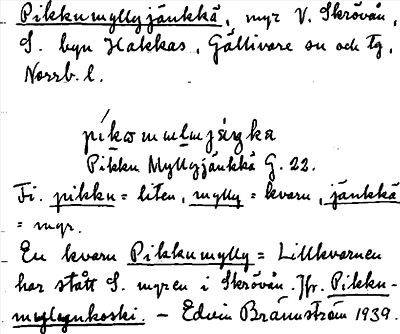 Pikkumyllyjänkkä, myr V. Skröván,
S. byn Hakkas, Gällivare sn och tg,
Norrb. l.
Pikku Myllyjänkkä G. 22.
Fi. pikku = liten, mylly = kvarn, jänkkä
= myr.
En kvarn Pikkumylly = Lillkvarnen
har stått S. myren i Skröván. Jfr. Pikku-
myllynkoski. – Edvin Brännström 1939.